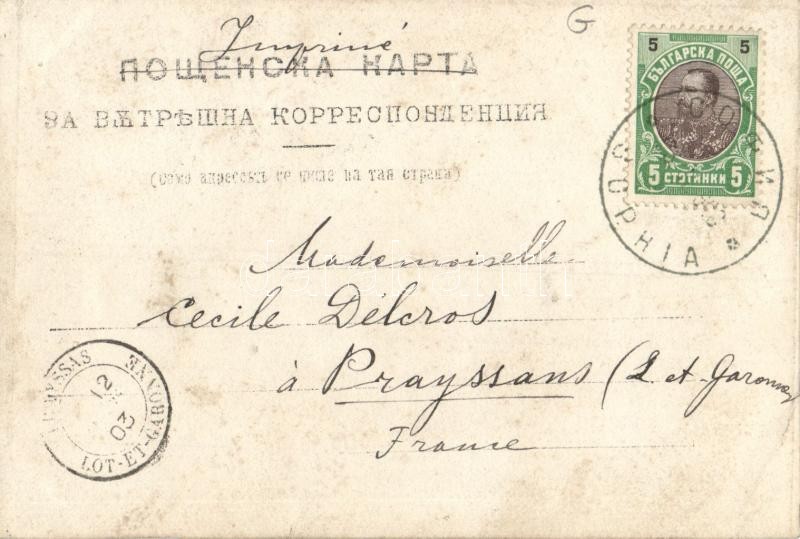 Imprimé
ПОЩЕНСКА КАРТА
ЗА ВѪТРѢШНА КОРРЕСПОНДЕНЦИЯ
(Само адрессътъ се пише на тая страна)
5 5
БЪЛГАРСКА ПОЩА
5 СТОТИНКИ 5
СОФИЯ
SOPHIA
Mademoiselle
Cecile Délcros
à Prayssans (L et Garonne)
France
12
03
LOT-ET-GARONNE